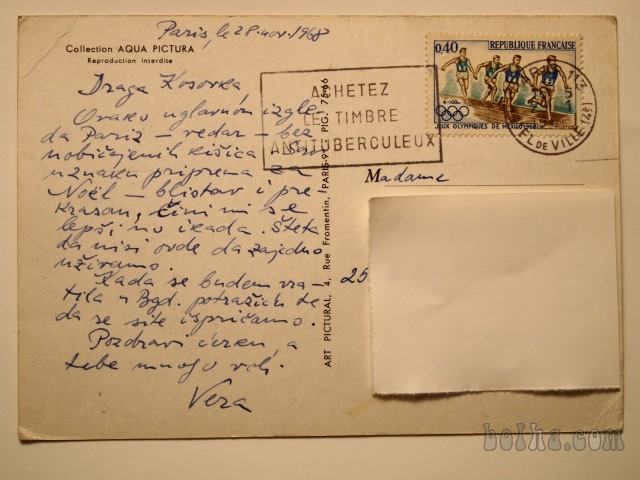 Paris, le 28. nov. 1968
Collection AQUA PICTURA
Reproduction Interdite
Draga Kosovka,
Ovako uglavnom izgle-
da Pariz – vedar – bez
uobičajenih kišica. Sav
u znaku priprema za
Noël – blistav i pre-
krasan, čini mi se
lepši no ikada. Šteta
da nisi ovde da zajedno
uživamo.
Kada se budem vra-
tila u Bgd. potražiću te
da se site ispričamo.
Pozdravi ćerku, a
tebe mnogo voli.
Vera
ART PICTURAL, 4, Rue Fromentin, PARIS-9e PIG. 75-66
ACHETEZ
LE TIMBRE
ANTITUBERCULEUX
0,40 REPUBLIQUE FRANCAISE
4×100m
JEUX OLYMPIQUES DE MEXICO 1968
POSTES
EL DE VILLE (4E)
Madame
25
bolha.com